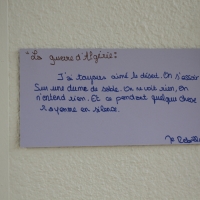 "La guerre d'Algérie:
J'ai toujours aimé le désert. On s'assoir
Sur une dume de sable. On ne voit rien, On
n'entend rien. Et ce pendant quelque chose
rayonne en silence.